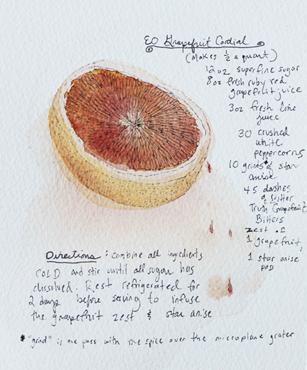 EO Grapefruit Cordial
(Makes ½ a quart)
12 oz superfine sugar
8 oz fresh ruby red
grapefruit juice
3 oz fresh lime
juice
30 crushed
white
peppercorns
10 grinds of star
anise
45 dashes
of Bitter
Truth Grapefruit
Bitters
zest of
1 grapefruit,
1 star anise
pod
Directions: combine all ingredients
COLD and stir until all sugar has
dissolved. Rest refrigerated for
2 days before serving to infuse
the grapefruit zest & star anise
* "grind" is one pass with the spice over the microplane grater